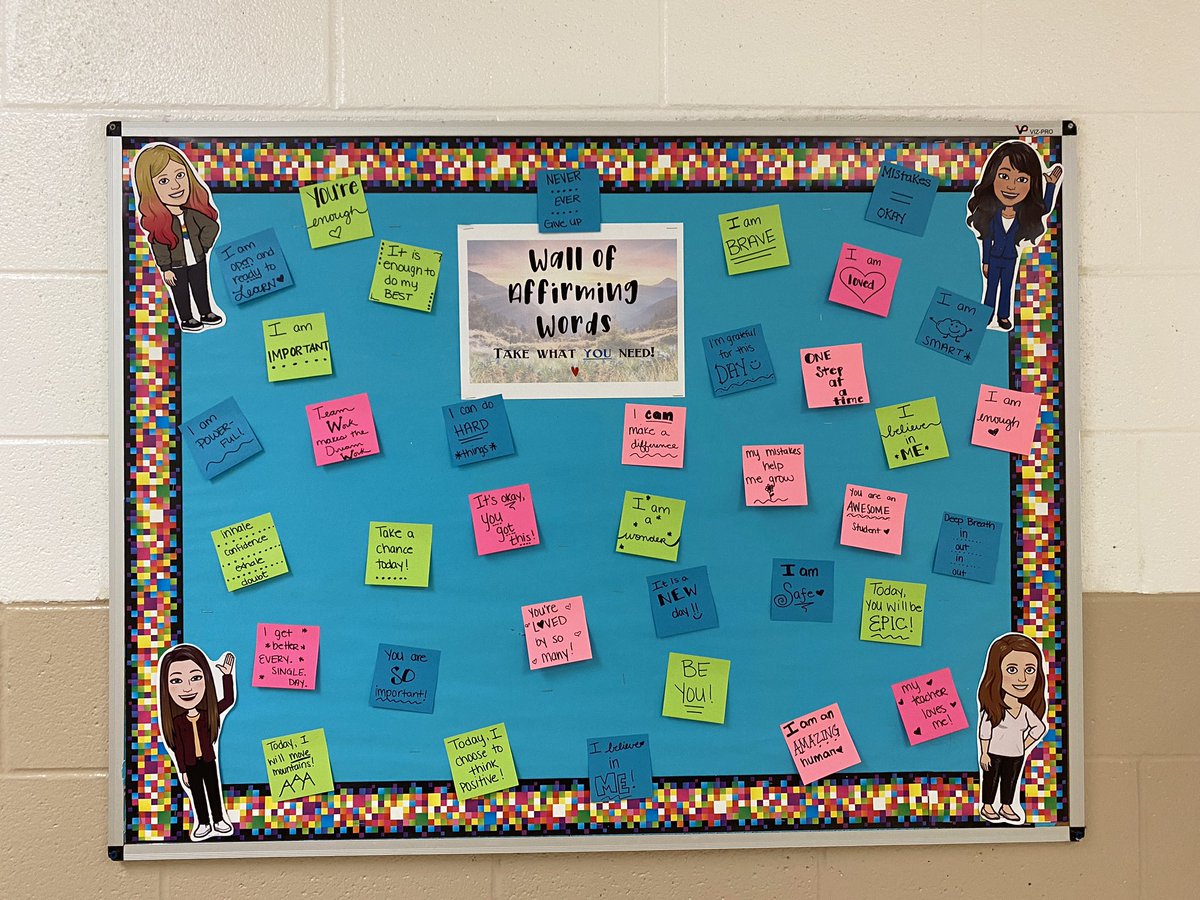 VP VIZ-PRO
YOU'RE
enough
NEVER
EVER
GIVE UP
MISTAKES
=
OKAY
I am
BRAVE
I am
OPEN and
ready to
LEARN
It is
enough to
do my
BEST
Wall of
Affirming
Words
TAKE WHAT YOU NEED!
I am
loved
I am
SMART
I am
IMPORTANT
I'm grateful
for this
DAY
ONE
Step at
a
time
I am
POWER-
FUL!
Team
Work
makes the
Dream
Work
I can do
HARD
*things*
I can
make a
difference
I
believe
in
*ME*
I am
enough
my mistakes
help
me grow
It's okay,
you
got
this!
I am
a
wonder
You are an
AWESOME
Student
Deep Breath
in
out
in
out
Inhale
confidence
exhale
doubt
Take a
chance
today!
It is a
NEW
day!!
I am
Safe
Today,
you will be
EPIC!
You're
LOVED
by so
many!
I get
*better*
EVERY.
SINGLE.
DAY.
You are
SO
important!
BE
YOU!
my
teacher
loves
me!
Today, I
will move
mountains!
Today, I
choose to
think
Positive!
I believe
in
ME!
I am an
AMAZING
human